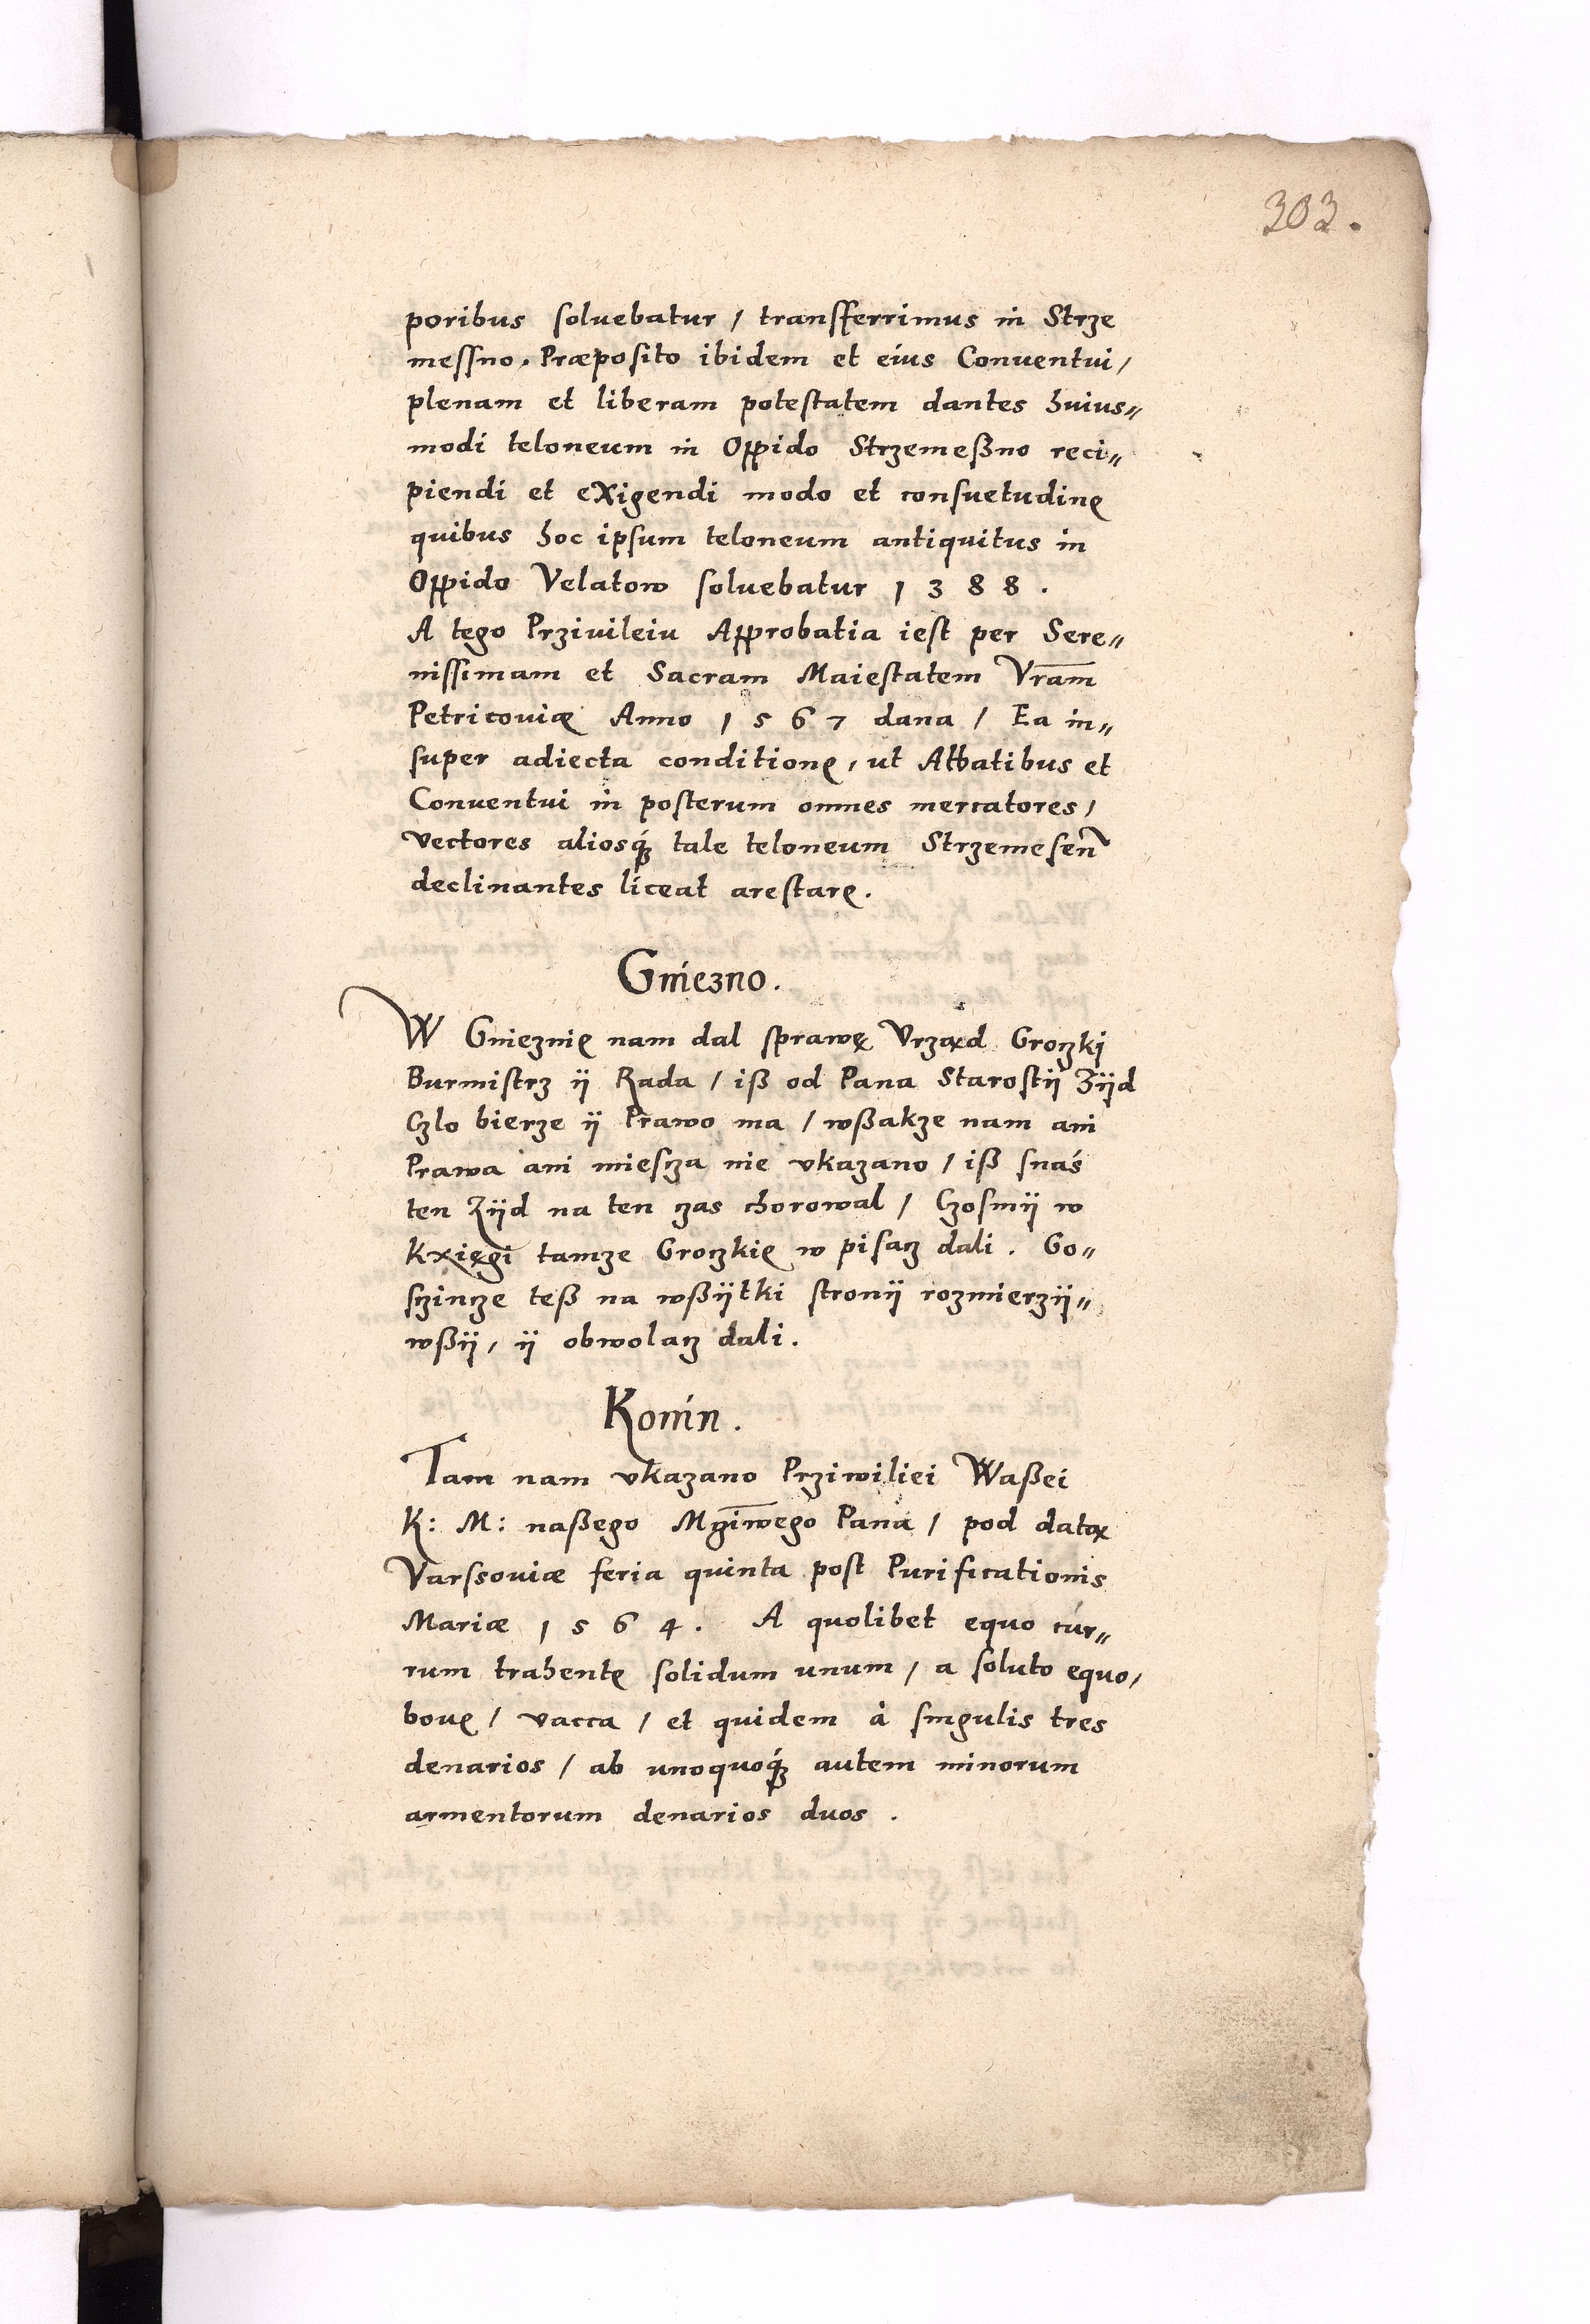 303.
poribus soluebatur / transfferrimus in Strze
messno, Præposito ibidem et eius Conuentui /
plenam et liberam potestatem dantes huius〃
modi teloneum in Oppido Strzemeßno reci〃
piendi et eXigendi modo et consuetudinę
quibus hoc ipsum teloneum antiquitus in
Oppido Velatow soluebatur 1 3 8 8 .
A tego Prziuileiu Approbatia iest per Sere〃
nissimam et Sacram Maiestatem Vram̅
Petricouiæ Anno 1 5 6 7 dana / Ea in〃
super adiecta conditionę, ut Abbatibus et
Conuentui in posterum omnes mercatores /
vectores aliosq́ꝫ tale teloneum Strzemesen̅
declinantes liceat arestarę.
Gniezno.
W Gnieznię nam dal sprawę Vrząd Groczki
Burmistrz ÿ Rada / iß od Pana Starostÿ Zÿd
Czlo bierze ÿ Prawo ma / wßakze nam ani
Prawa ani miescza nie vkazano / iß snaś
ten Zÿd na ten czas chorowal / Czosmÿ w
Kxięgi tamze Groczkię w pisacz dali . Go〃
sczincze teß na wßÿtki stronÿ rozmierzÿ〃
wßÿ, ÿ obwolacz dali .
Konin .
Tam nam vkazano Prziwiliei Waßei
K: M: naßego Mgi̅wego Pana / pod datą
Varssouiæ feria quinta post Purificationis
Mariæ 1 5 6 4 . A quolibet equo cúr〃
rum trahentę solidum unum / a soluto equo,
bouę / vacca / et quidem à singulis tres
denarios / ab unoquoq́ꝫ autem minorum
armentorum denarios duos .